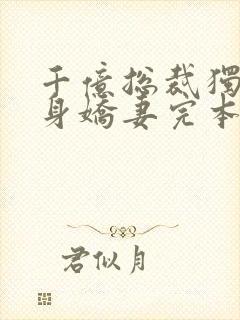 千億总裁獨
身嬌妻完本
君似月